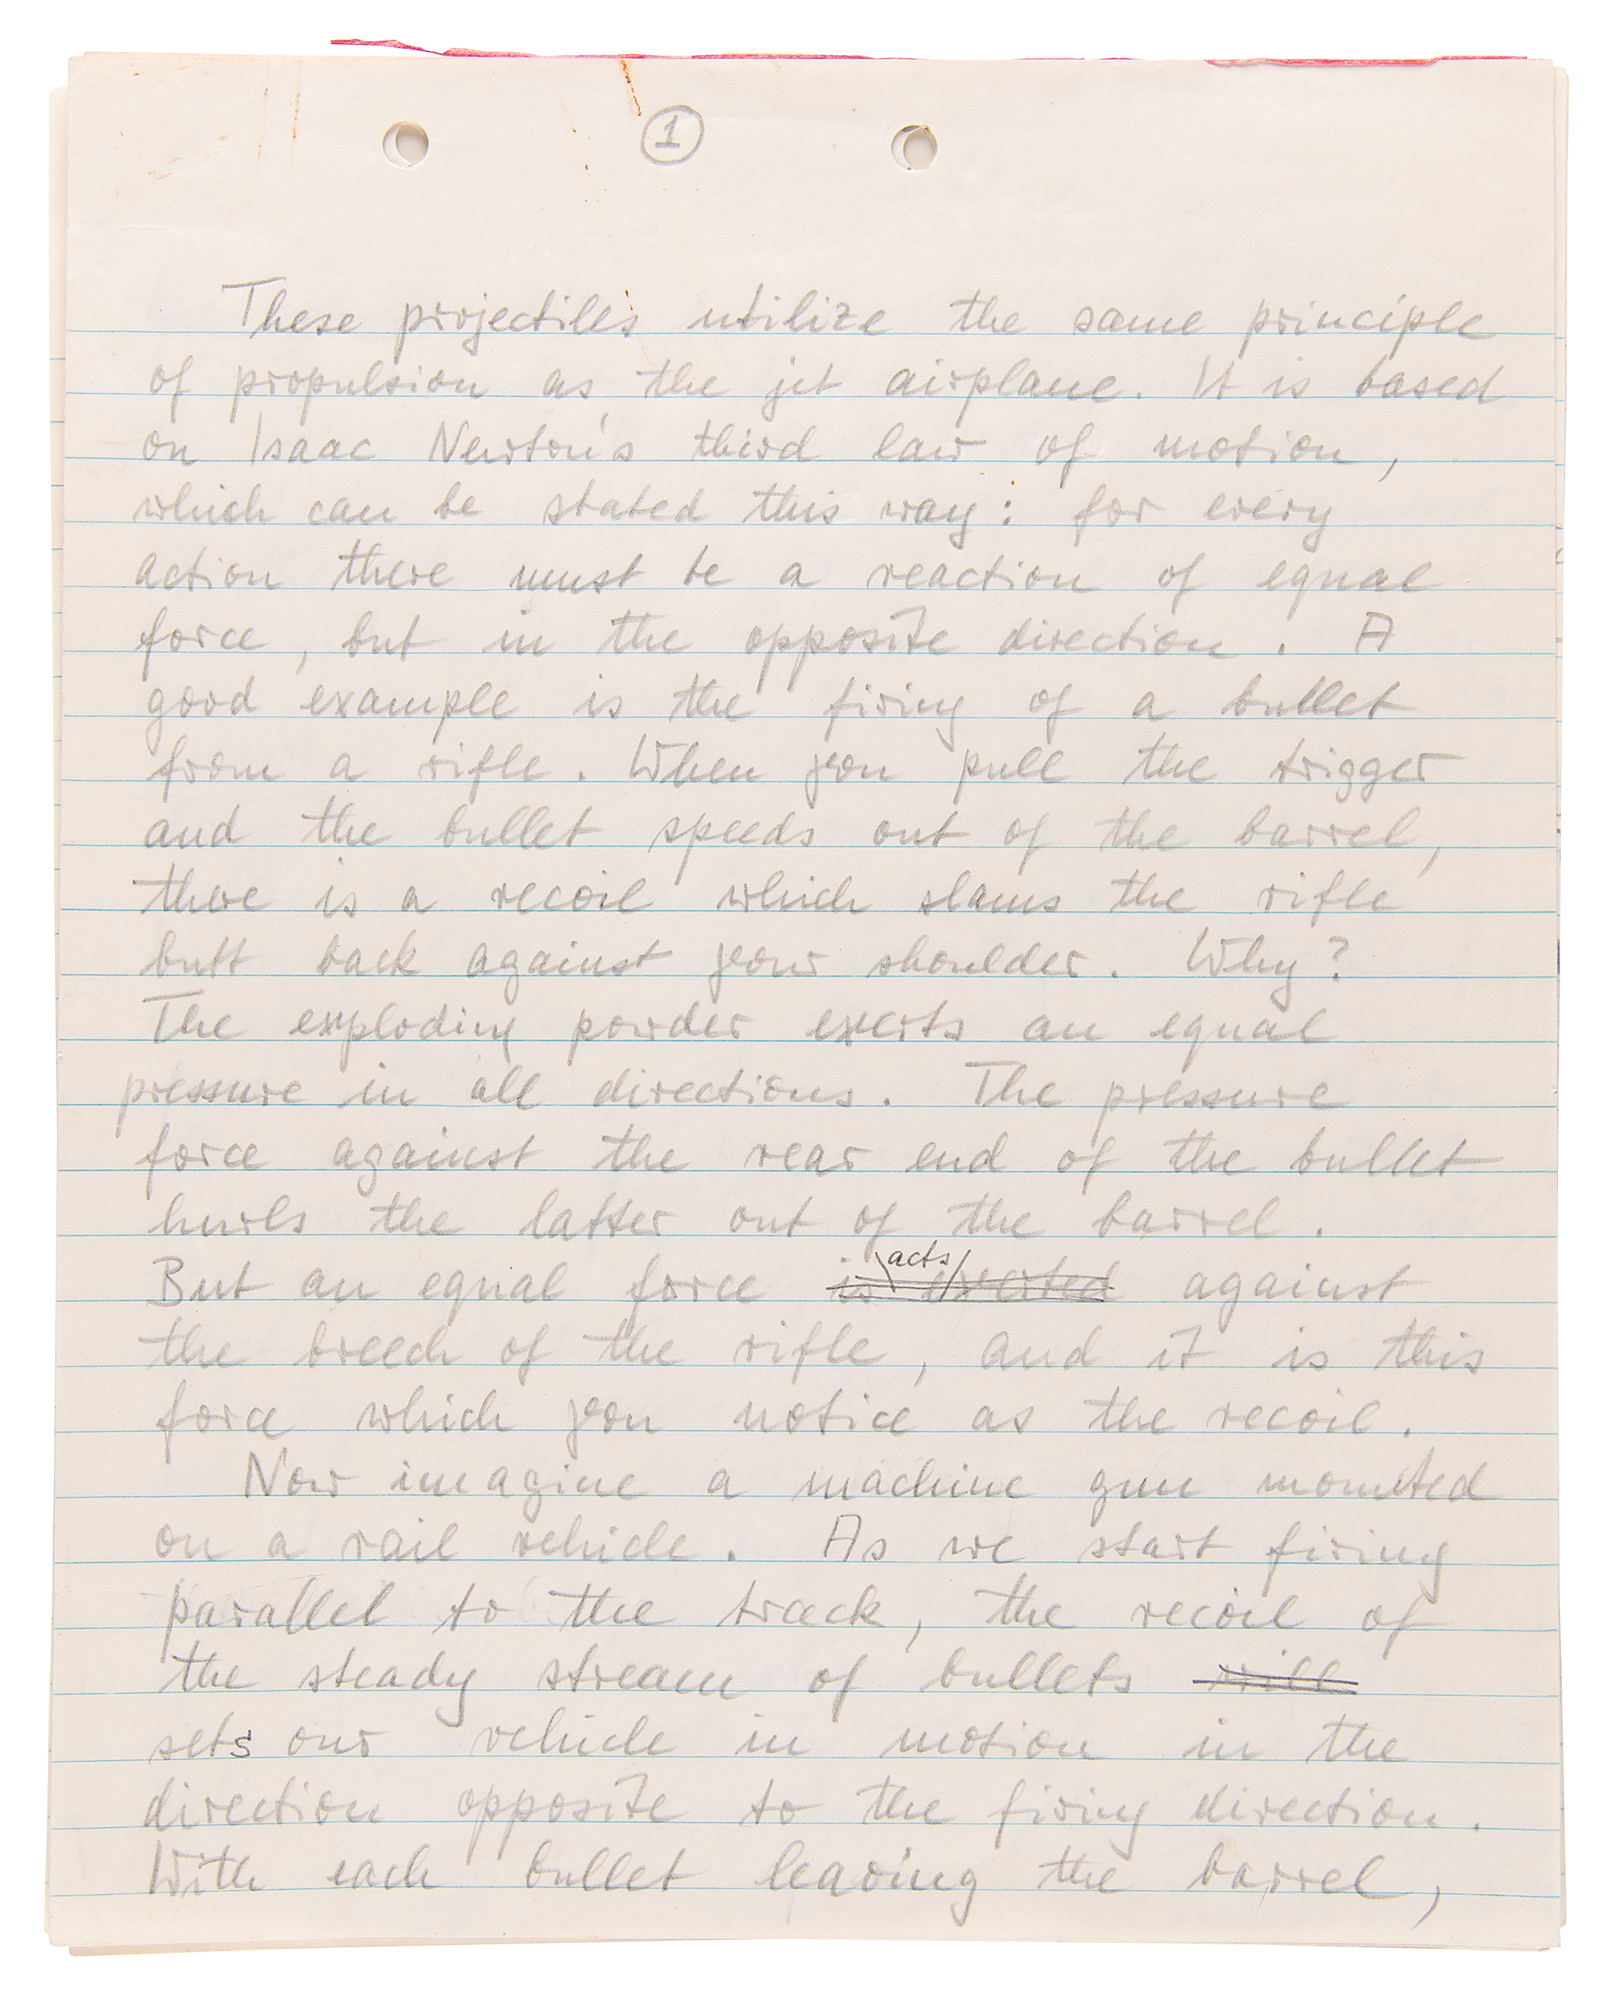 1
These projectiles utilize the same principle
of propulsion as the jet airplane. It is based
on Isaac Newton's third law of motion,
which can be stated this way: for every
action there must be a reaction of equal
force, but in the opposite direction. A
good example is the firing of a bullet
from a rifle. When you pull the trigger
and the bullet speeds out of the barrel,
there is a recoil which slams the rifle
butt back against your shoulder. Why?
The exploding powder exerts an equal
pressure in all directions. The pressure
force against the rear end of the bullet
hurls the latter out of the barrel.
acts
But an equal force is exerted against
the breech of the rifle, and it is this
force which you notice as the recoil.
Now imagine a machine gun mounted
on a rail vehicle. As we start firing
parallel to the track, the recoil of
the steady stream of bullets will
sets our vehicle in motion in the
direction opposite to the firing direction.
With each bullet leaving the barrel,